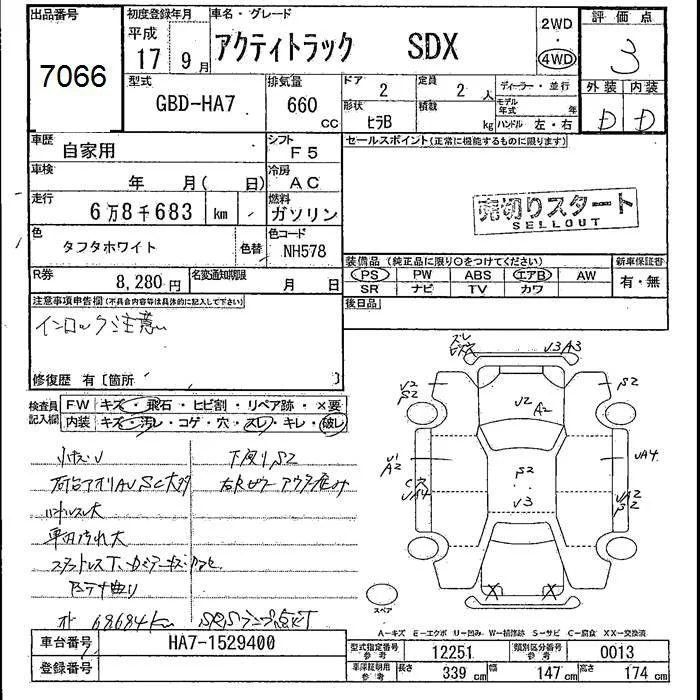 出品番号
7066
初度登録年月
平成
17 9 月
車名・グレード
アクティトラック SDX
2WD
4WD
評価点
3
外装 内装
D D
型式
GBD-HA7
排気量
660
cc
ドア
2
定員
2 人
形状
ヒラB
積載
kg
ディーラー・並行
モデル年式 年
ハンドル 左・右
車歴
自家用
シフト
F5
セールスポイント(正常に機能するものに限ります)
車検
年 月( 日)
冷房
AC
売切りスタート
SELLOUT
走行
6万8千683 km
燃料
ガソリン
色
タフタホワイト
色替
色コード
NH578
装備品(純正品に限り○をつけてください)
PS PW ABS エアB AW
SR ナビ TV カワ
新車保証書
有・無
R券
8,280円
名変通知期限
月 日
後日品
注意事項申告欄(不具合内容等は具体的に記入して下さい)
インロック注意
修復歴 有[箇所 ]
検査員記入欄
FW キズ・飛石・ヒビ割・リペア跡・×要
内装 キズ・汚レ・コゲ・穴・スレ・キレ・破レ
小キズU
下廻りS2
ハンドルスレ大
車内汚れ大
アンテナ曲り
オト 68684km
SRSランプ点灯
V3 A3
U2
S2
S2
U2
A2
U1
A2
UA4
S2
V3
C穴
UA4
UA2
S2
X X
スペア
A-キズ E-エクボ U-凹み W-補修跡 S-サビ C-腐食 XX-交換済
車台番号
HA7-1529400
登録番号
型式指定番号
参考
12251
類別区分番号
参考
0013
車庫証明用
参考
長さ
339 cm
幅
147 cm
高さ
174 cm